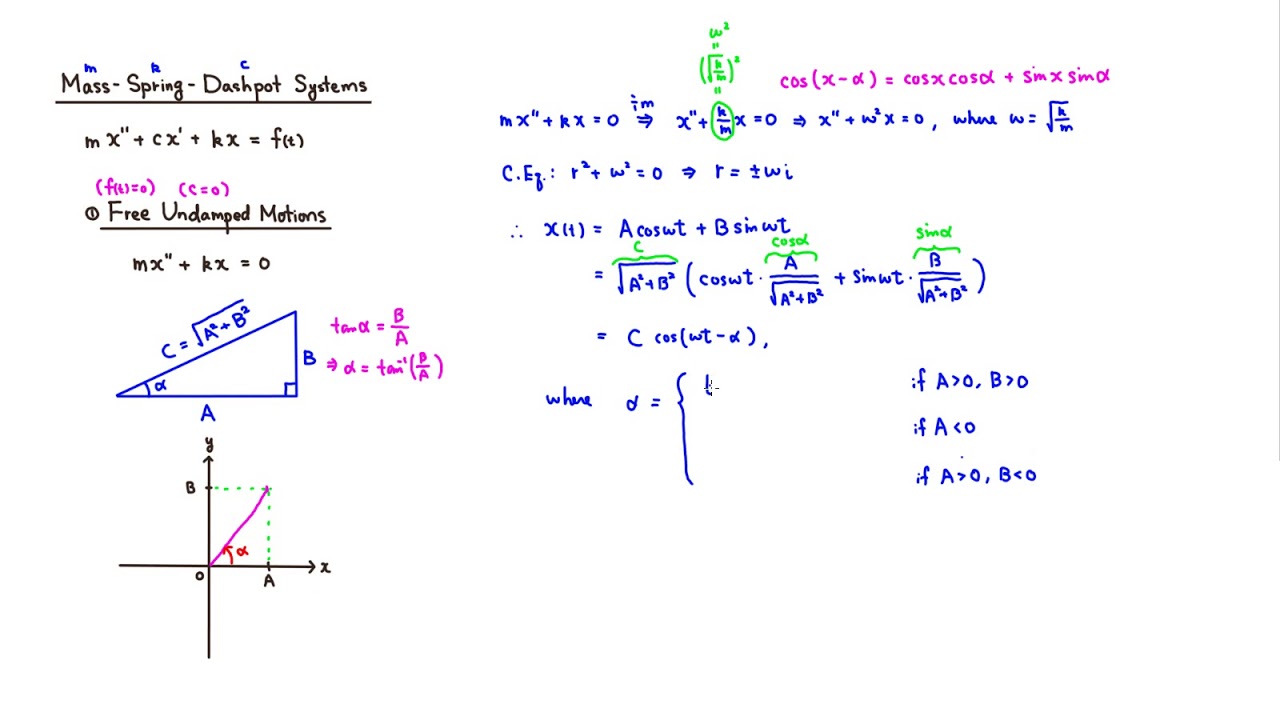 m k c
Mass-Spring-Dashpot Systems
mx'' + cx' + kx = f(t)
(f(t)=0) (c=0)
① Free Undamped Motions
mx'' + kx = 0
C = √(A²+B²)
α
B
A
tanα = B/A
⇒ α = tan⁻¹(B/A)
y
B
α
O
A
x
ω²
"
(√(k/m))²
"
cos(x-α) = cosx cosα + sinx sinα
mx'' + kx = 0 ÷m ⇒ x'' + (k/m)x = 0 ⇒ x'' + ω²x = 0, where ω = √(k/m)
C.Eq.: r² + ω² = 0 ⇒ r = ±ωi
∴ x(t) = A cosωt + B sinωt
C cosα sinα
= √(A²+B²) (cosωt · A/√(A²+B²) + sinωt · B/√(A²+B²))
= C cos(ωt-α),
where α = {
if A>0, B>0
if A<0
if A>0, B<0